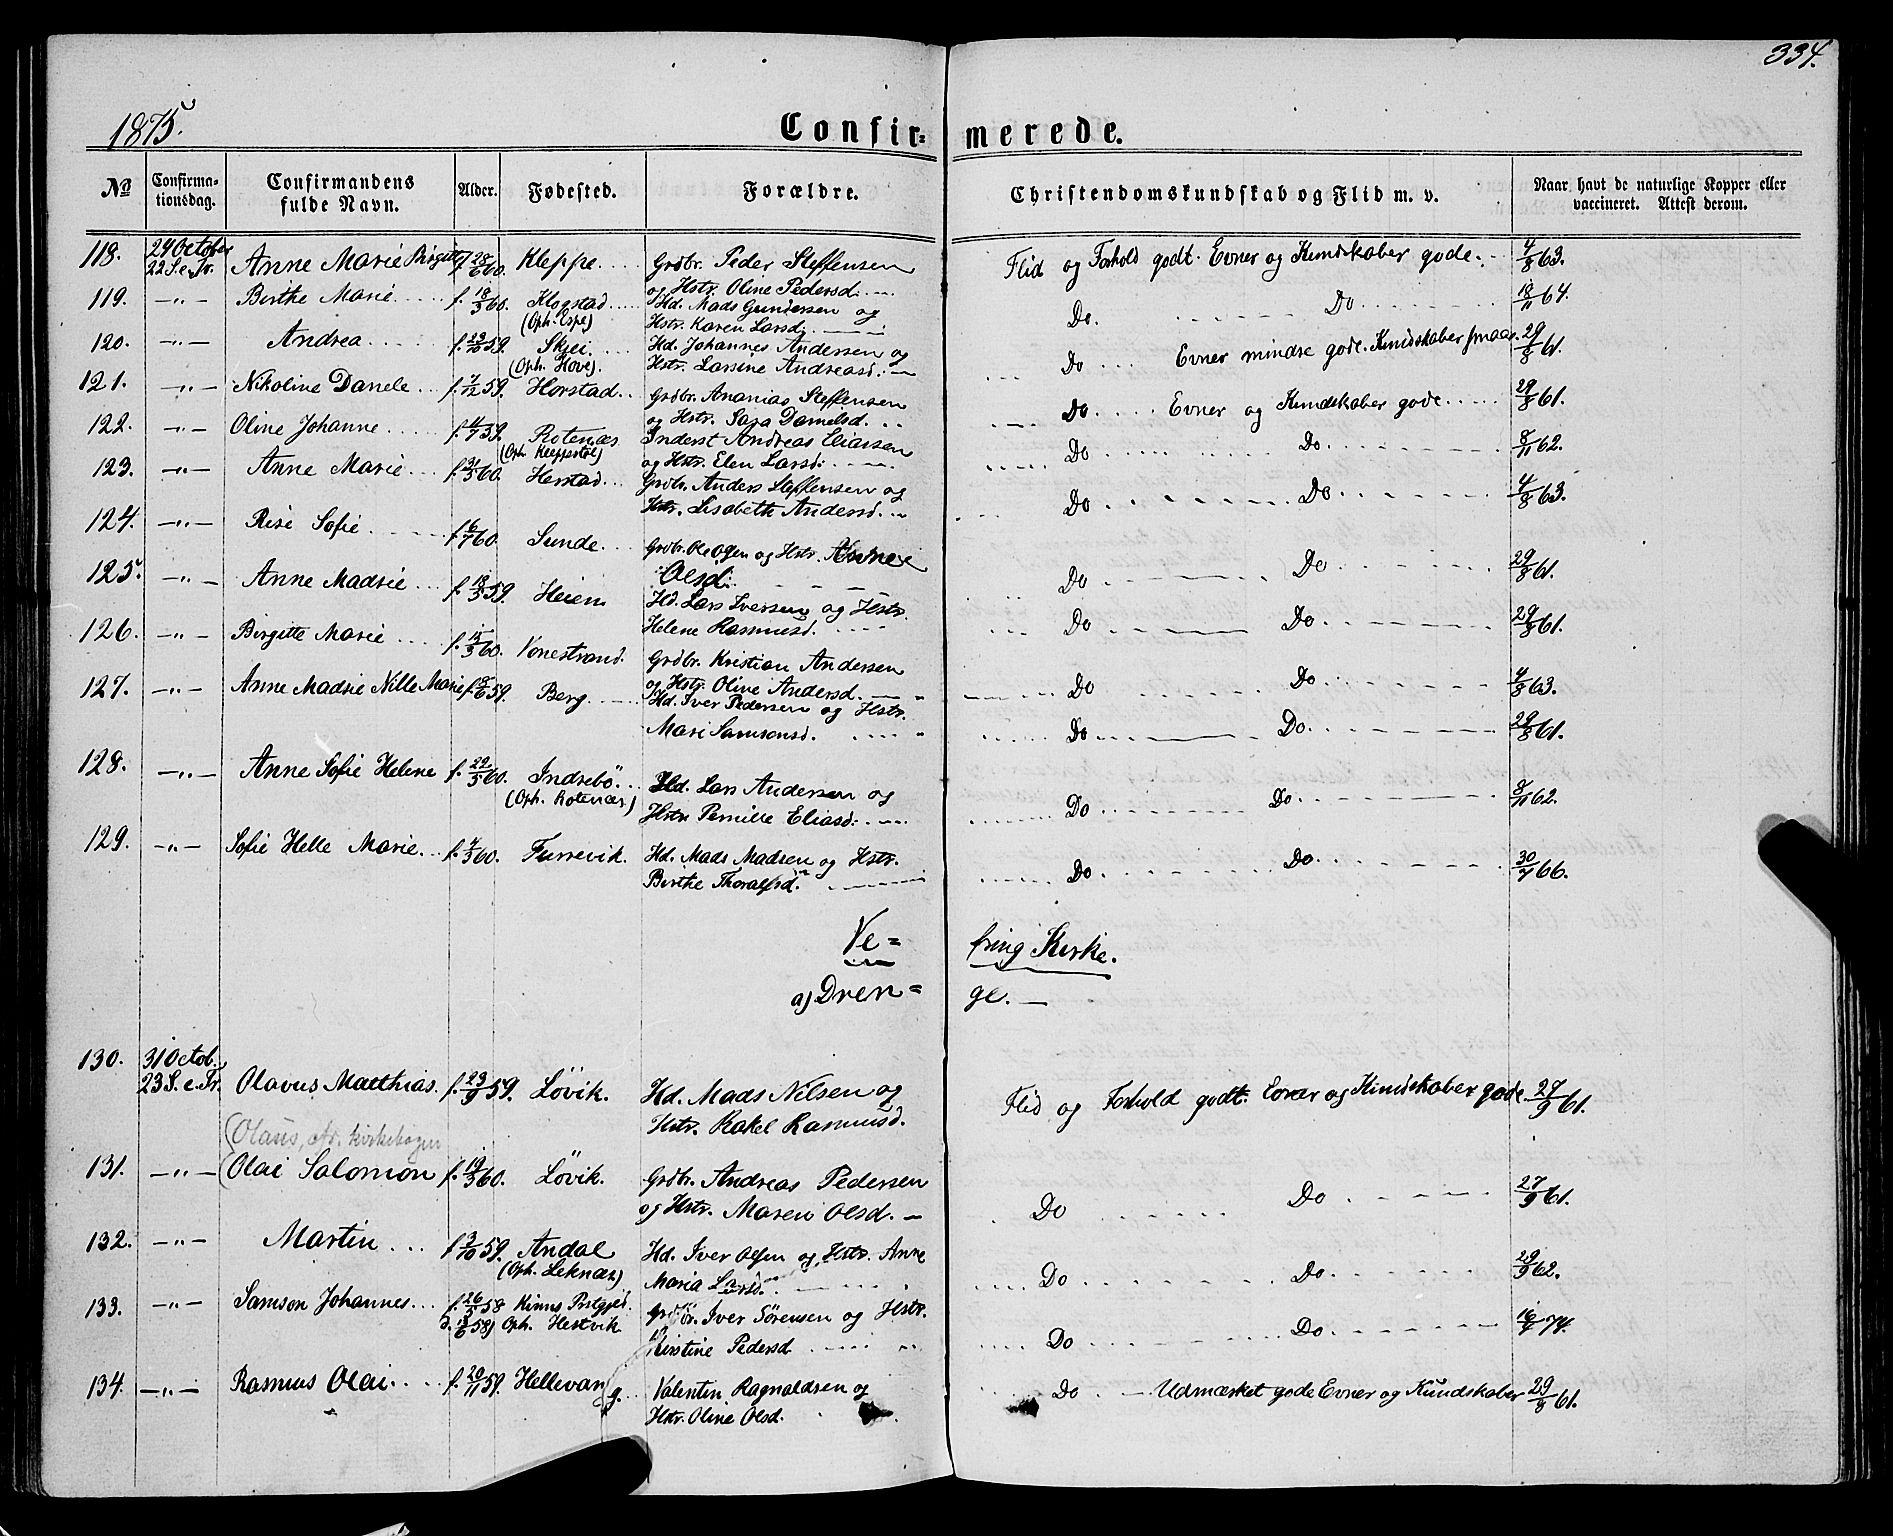 334.
1875.
Confir= merede.
No
Confirma-
tionsdag.
Confirmandens
fulde Navn.
Alder.
Fødested.
Forældre.
Christendomskundskab og Flid m. v.
Naar havt de naturlige Kopper eller
vaccineret. Attest derom.
118. 24 October Anne Marie Birgitte f. 28/6 60. Kleppe. Grdbr. Peder Steffensen Flid og Forhold godt. Evner og Kundskaber gode. 4/8 63.
22 S. e. Tr. og Hstr. Oline Pedersd.
119. -"- Berthe Marie f. 18/3 60. Klogstad Hd. Mads Gundersen og Do. Do 18/11 64.
(Oph. Espe) Hstr. Karen Larsd.
120. -"- Andrea f. 23/10 59. Skjei. Hd. Johannes Andersen og Do Evner mindre gode. Kundskaber smaa. 29/8 61.
(Oph. Hove). Hstr. Larsine Andreasd.
121. -"- Nikoline Danele f. 7/12 59. Horstad Grdbr. Ananias Steffensen Do Evner og Kundskaber gode 29/8 61.
og Hstr. Sara Danielsd.
122. -"- Oline Johanne f. 4/7 59. Rotenæs Inderst Andreas Eliassen Do Do 8/11 62.
(Oph. Kleppstöl) og Hstr. Elen Larsd.
123. -"- Anne Marie f. 31/3 60. Herstad Grdbr. Anders Steffensen og Do Do 4/8 63.
Hstr. Lisabeth Andersd.
124. -"- Risi Sofie f. 6/7 60. Sunde Grdbr. Ole Olsen og Hstr. Anne Do Do 29/8 61.
Olsd.
125. -"- Anne Madsie f. 18/3 59. Heiem Hd. Lars Iversen og Hstr. Do Do 29/8 61.
Helene Rasmusd.
126. -"- Birgitte Marie f. 15/3 60. Vonestrand. Grdbr. Kristian Andersen Do Do 4/8 63.
og Hstr. Oline Andersd.
127. -"- Anne Madsie Nille Marie f. 18/6 59. Berg Hd. Iver Pedersen og Hstr. Do Do 29/8 61.
Mari Samsonsd.
128. -"- Anne Sofie Helene f. 22/5 60. Indrebö Hd. Lars Andersen og Do Do 8/11 62.
(Oph. Rotenæs) Hstr. Pernille Eliasd.
129. -"- Sofie Helle Marie f. 4/3 60. Furrevik. Hd. Mads Madsen og Hstr. Do Do 30/7 66.
Berthe Thoralfsd.
Ve= vring Kirke.
a) Dren= ge.
130. 31 Octob. Olavus Matthias. f. 23/9 59. Lövik. Hd. Mads Nilsen og Flid og Forhold godt. Evner og Kundskaber gode 27/9 61.
23 S. e. Tr. Hstr. Rakel Rasmusd.
(Olaus, kirkebogen
131. -"- Olai Salomon f. 19/3 60. Lövik. Grdbr. Andreas Pedersen Do Do 27/9 61.
og Hstr. Maren Olsd.
132. -"- Martin f. 3/10 59. Andal Hd. Iver Olsen og Hstr. Anne Do Do 29/9 62.
(Oph. Leknæs) Maria Larsd.
133. -"- Samson Johannes f. 26/5 58 Kinns Prstgjed. Grdbr. Iver Sörensen og Hstr. Do Do 16/4 74.
58) Oph. Hestvik Kirstine Pedersd
134. -"- Rasmus Olai f. 20/11 59. Hellevang. Valentin Ragnaldsen og Do Udmærket gode Evner og Kundskaber 29/8 61.
Hstr. Oline Olsd.